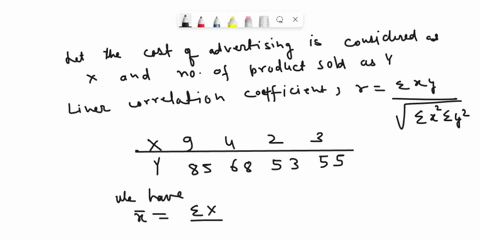 Let the cost of advertising is considered as
X and no. of product sold as Y
Liner correlation coefficient, r = Σxy / √Σx²Σy²
X 9 4 2 3
Y 85 68 53 55
We have
x̄ = ΣX